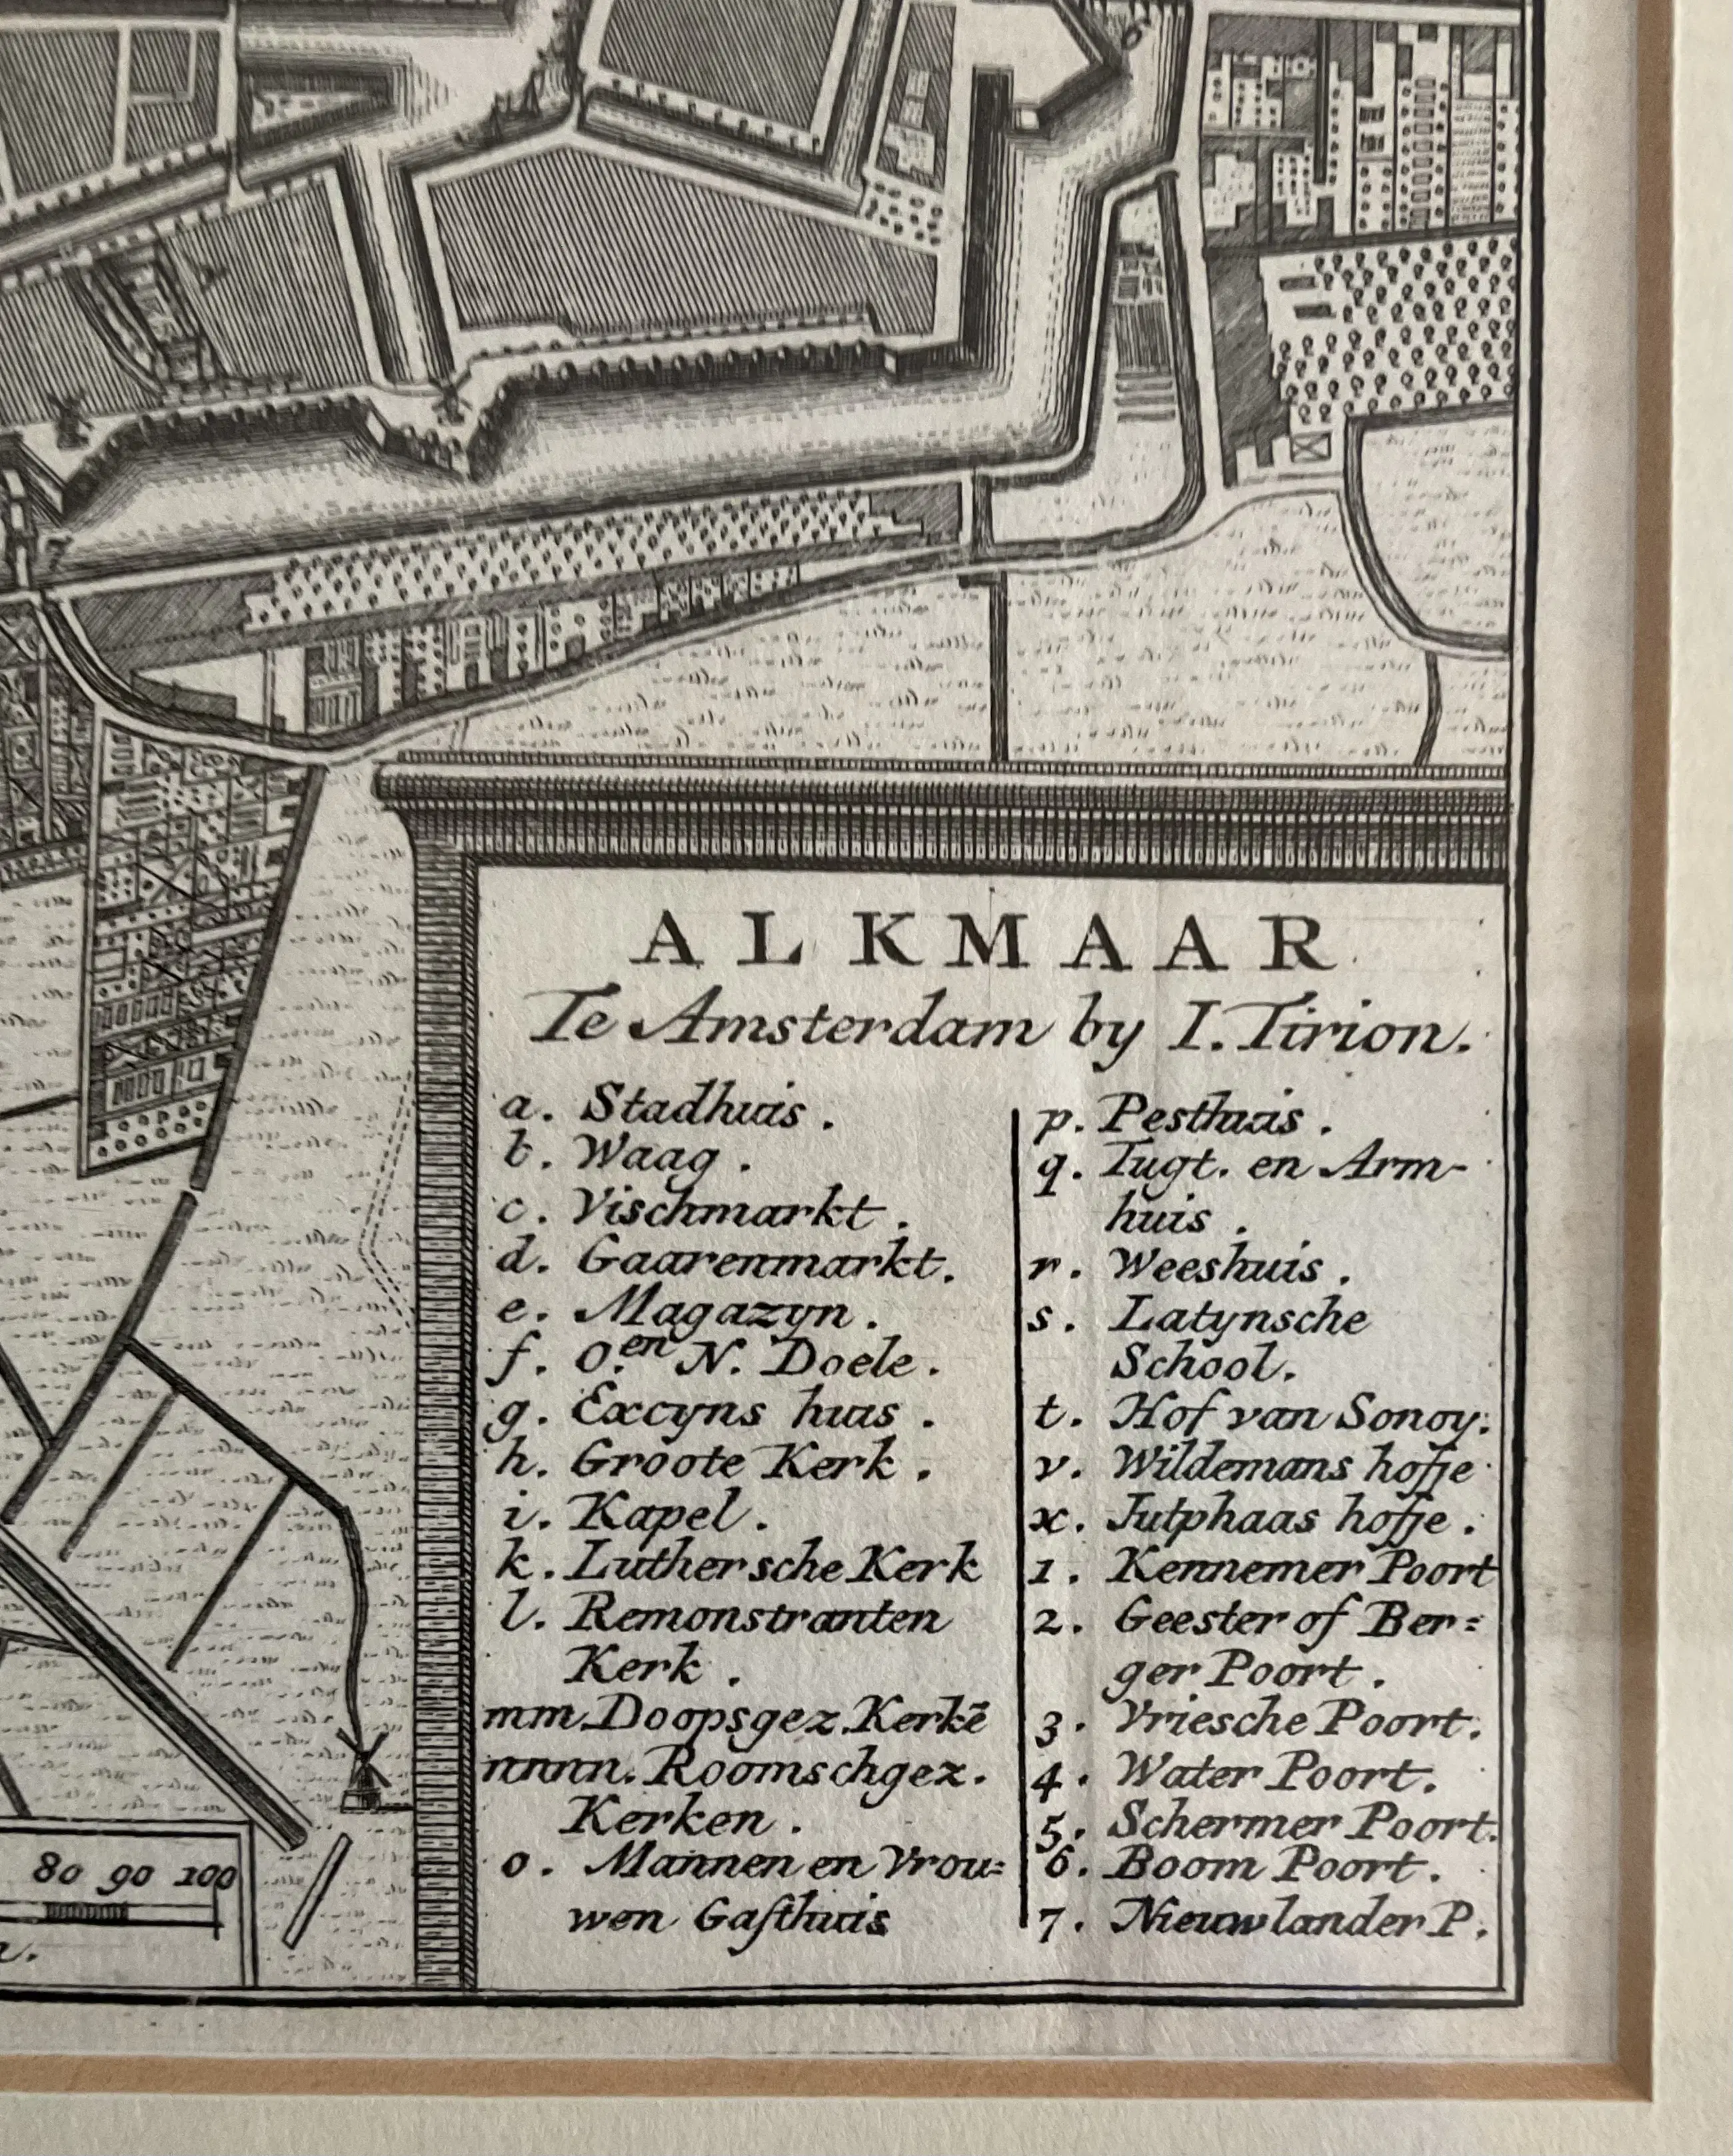 6
7
ALKMAAR
Te Amsterdam by I. Tirion.
a. Stadhuis.
b. Waag.
c. Vischmarkt.
d. Gaarenmarkt.
e. Magazyn.
f. O. en N. Doele.
g. Excyns huis.
h. Groote Kerk.
i. Kapel.
k. Luthersche Kerk
l. Remonstranten
Kerk.
mm. Doopsgez. Kerkē
nnnn. Roomschgez.
Kerken.
o. Mannen en Vrou=
wen Gaſthuis
p. Pesthuis.
q. Tugt. en Arm-
huis.
r. Weeshuis.
s. Latynsche
School.
t. Hof van Sonoy.
v. Wildemans hofje
x. Jutphaas hofje.
1. Kennemer Poort
2. Geester of Ber=
ger Poort.
3. Vriesche Poort.
4. Water Poort.
5. Schermer Poort.
6. Boom Poort.
7. Nieuwlander P.
80 90 100